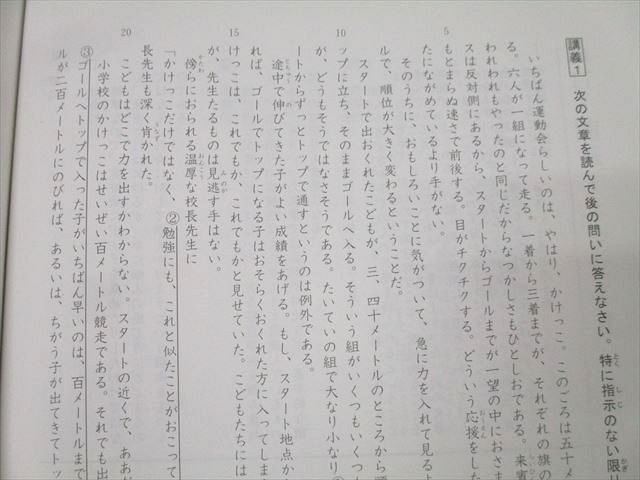 講義1 次の文章を読んで後の問いに答えなさい。特に指示のない限り
いちばん運動会らしいのは、やはり、かけっこ。このごろは五十メ
る。六人が一組になって走る。一着から三着までが、それぞれの旗の
われわれもやったのと同じだからなつかしさもひとしおである。来賓
スは反対側にあるから、スタートからゴールまでが一望の中におさま
もとまらぬ速さで前後する。目がチクチクする。どういう応援をした
たにながめているより手がない。
そのうちに、おもしろいことに気がついて、急に力を入れて見るよ
ルで、順位が大きく変わるということだ。
スタートで出おくれたこどもが、三、四十メートルのところから順
ップに立ち、そのままゴールへ入る。そういう組がいくつもいくつ
が、どうもそうではなさそうである。たいていの組で大なり小なり
ートからずっとトップで通すというのは例外である。
途中で伸びてきた子がよい成績をあげる。もし、スタート地点か
れば、ゴールでトップになる子はおそらくおくれた方に入ってしま
けっこは、これでもか、これでもかと見せていた。こどもたちには
が、先生たるものは見逃す手はない。
傍らにおられる温厚な校長先生に
「かけっこだけではなく、②勉強にも、これと似たことがおこって
長先生も深く肯かれた。
こどもはどこで力を出すかわからない。スタートの近くで、ああだ
小学校のかけっこはせいぜい百メートル競走である。それでも出
③ゴールへトップで入った子がいちばん早いのは、百メートルまで
ルが二百メートルにのびれば、あるいは、ちがう子が出てきてトッ
5
10
15
20